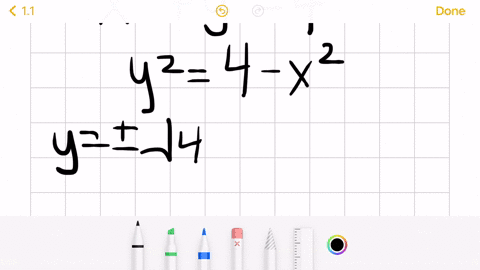 1.1 Done
y² = 4 - x²
y = ± √4